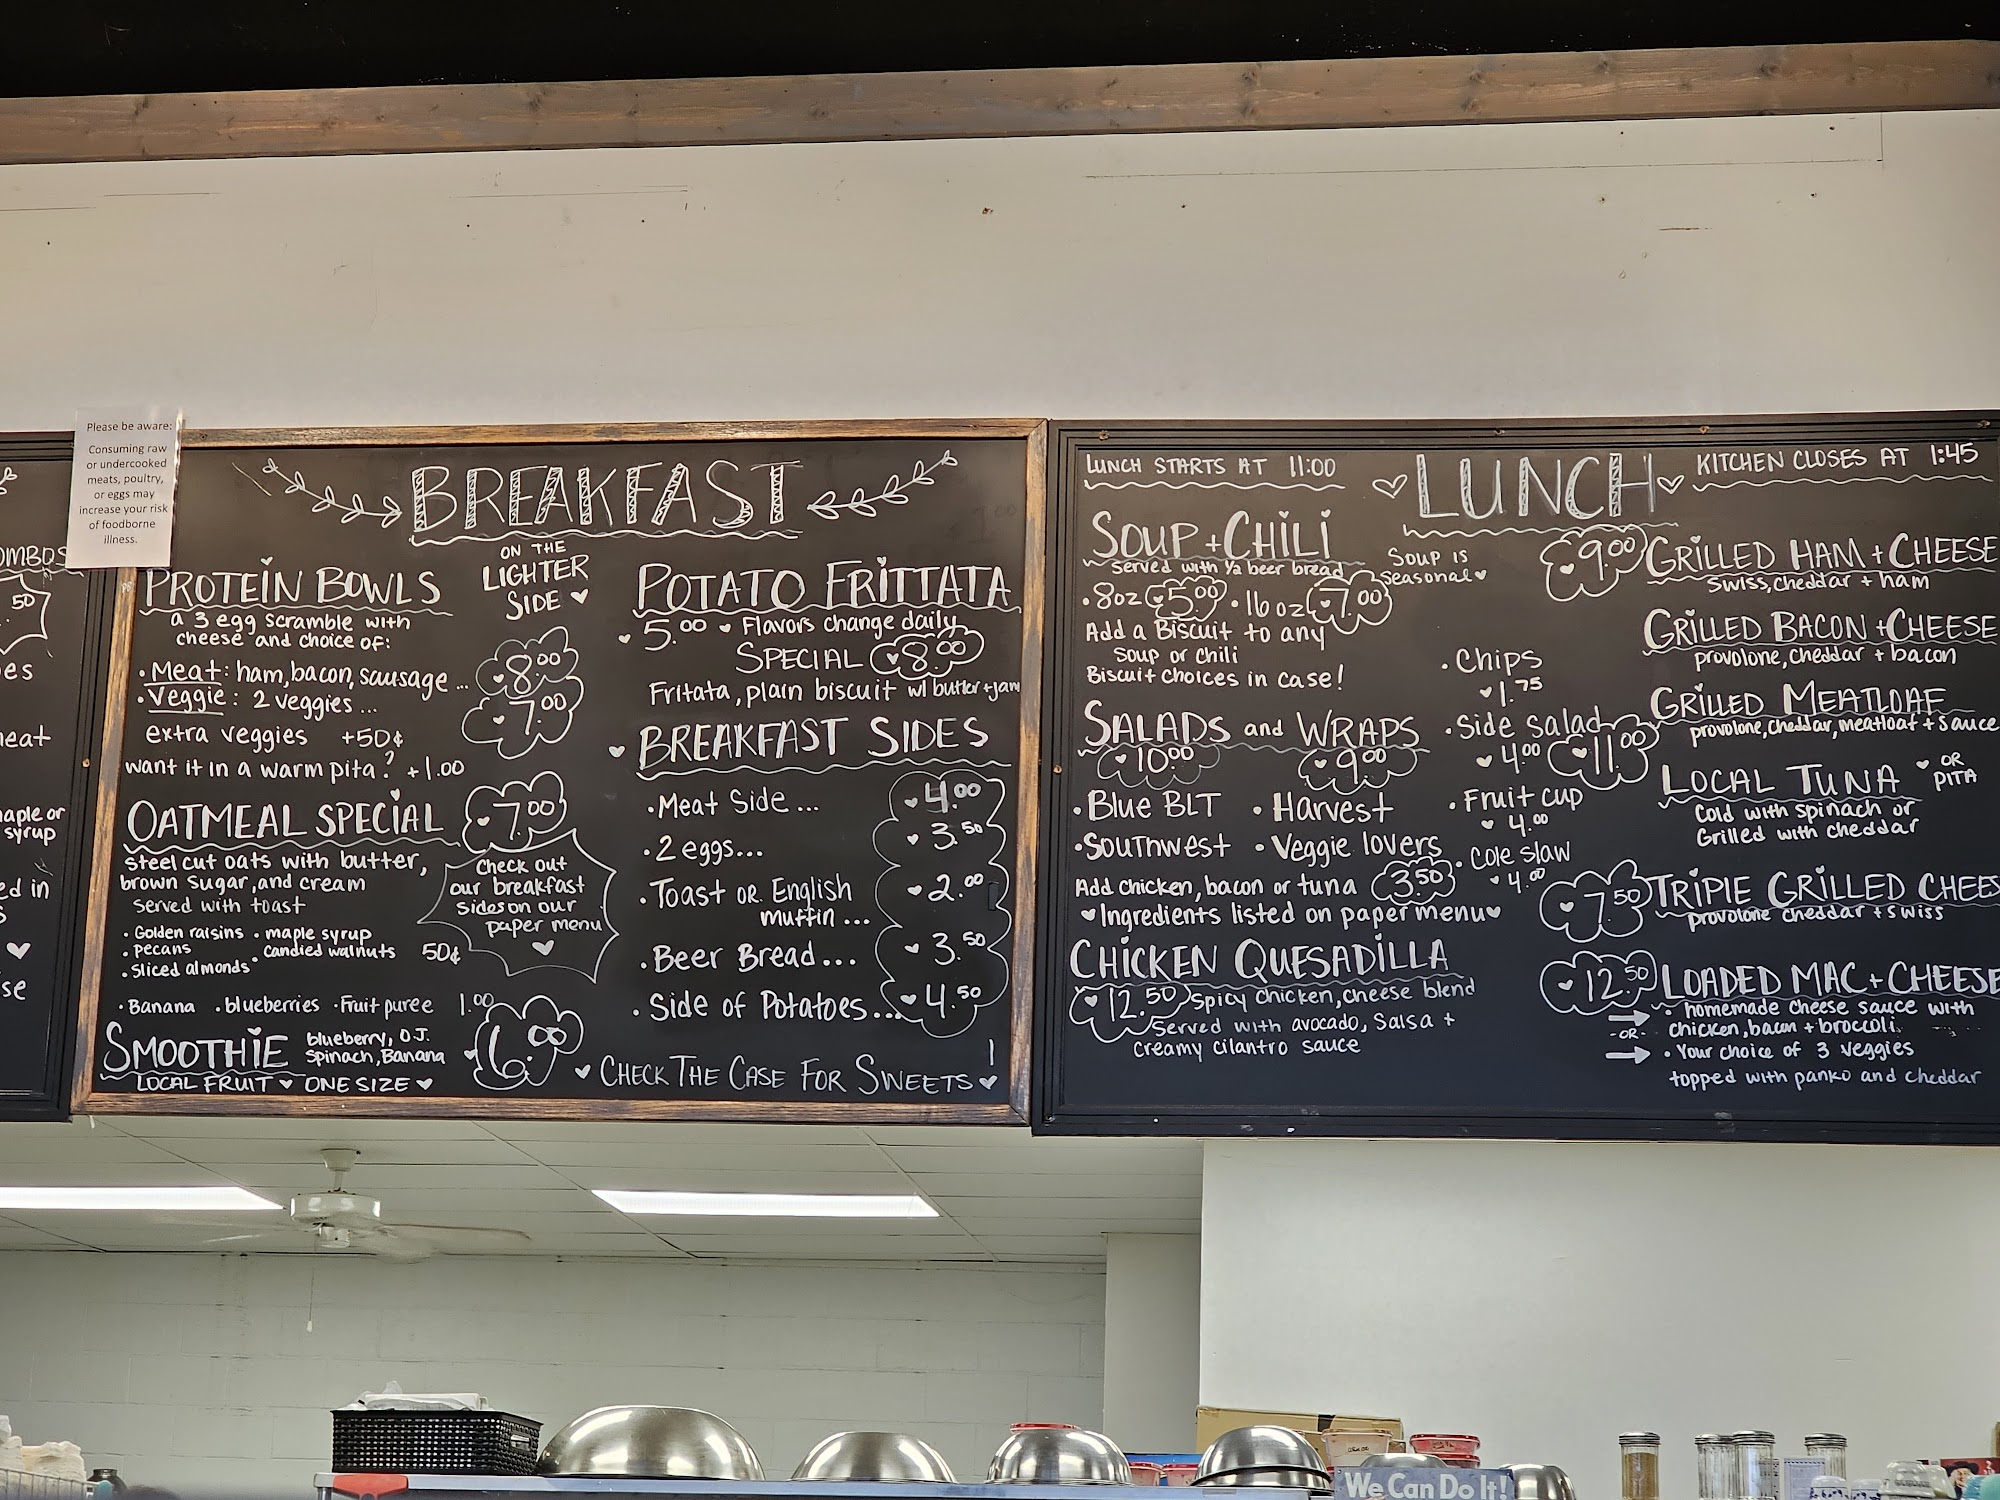 Please be aware:
Consuming raw
or undercooked
meats, poultry,
or eggs may
increase your risk
of foodborne
illness.
OMBOS
50
es
eat
maple or
syrup
ed in
se
BREAKFAST
ON THE
LIGHTER
SIDE
PROTEIN BOWLS
a 3 egg scramble with
cheese and choice of:
• Meat: ham, bacon, sausage ... 8.00
• Veggie: 2 veggies ... 7.00
extra veggies +50¢
want it in a warm pita? +1.00
OATMEAL SPECIAL 7.00
steel cut oats with butter,
brown sugar, and cream
served with toast
• Golden raisins • maple syrup
• pecans • candied walnuts 50¢
• Sliced almonds
• Banana • blueberries • Fruit puree 1.00
Check out
our breakfast
sides on our
paper menu
SMOOTHIE blueberry, O.J.
Spinach, Banana 6.00
LOCAL FRUIT ONE SIZE
POTATO FRITTATA
5.00 Flavors change daily
SPECIAL 8.00
Fritata, plain biscuit w/ butter + jam
BREAKFAST SIDES
• Meat Side ... 4.00
• 2 eggs... 3.50
• Toast OR English
muffin ... 2.00
• Beer Bread... 3.50
• Side of Potatoes... 4.50
CHECK THE CASE FOR SWEETS
LUNCH STARTS AT 11:00
LUNCH
KITCHEN CLOSES AT 1:45
SOUP + CHILI
served with 1/2 beer bread
Soup is
seasonal
• 8oz 5.00 • 16 oz 7.00
Add a Biscuit to any
Soup or Chili
Biscuit choices in case!
SALADS and WRAPS
10.00 9.00
• Blue BLT • Harvest
• Southwest • Veggie lovers
Add chicken, bacon or tuna 3.50
Ingredients listed on paper menu
CHICKEN QUESADILLA
12.50 Spicy chicken, cheese blend
Served with avocado, Salsa +
creamy cilantro sauce
• Chips
1.75
• Side Salad
4.00
• Fruit cup
4.00
• Cole Slaw
4.00
9.00 GRILLED HAM + CHEESE
Swiss, cheddar + ham
GRILLED BACON + CHEESE
provolone, cheddar + bacon
11.00 GRILLED MEATLOAF
provolone, cheddar, meatloaf + sauce
LOCAL TUNA OR
PITA
Cold with spinach or
Grilled with cheddar
7.50 TRIPLE GRILLED CHEES
provolone cheddar + swiss
12.50 LOADED MAC + CHEESE
• homemade cheese sauce with
chicken, bacon + broccoli
-OR-
• Your choice of 3 veggies
topped with panko and cheddar
We Can Do It!